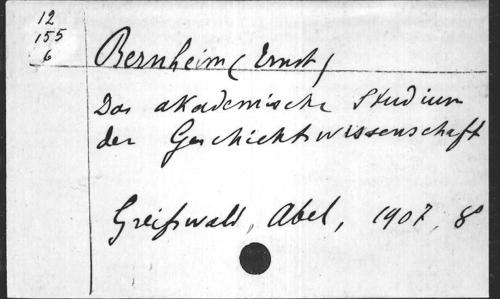 12
155
6
Bernheim (Ernst)
Das akademische Studium
der Geschichtswissenschaft
Greifswald, Abel, 1907, 8°